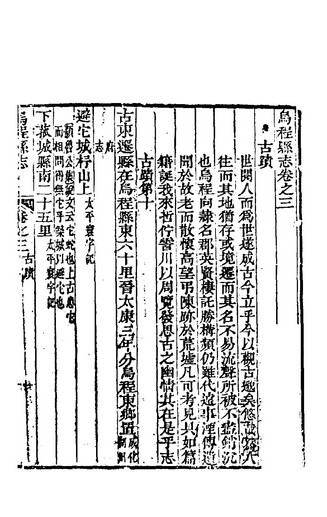 烏程縣志卷之三
古蹟
世閱人而爲世遂成古今立乎今以槻古邈矣悠
往而其地猶存或境遷而其名不易流聲所被不盡銷沉
也烏程向隸名郡英賢棲託勝構頻仍雖代遠事湮傳道
聞於故老而散懷高望弔陳跡於荒墟凡可考見具如篇
籍誕我來哲佇昔川以周覽發思古之幽情其在是乎志
古蹟第十
古東遷縣在烏程縣東六十里晉太康三年分烏程東鄉置
府志
避它城杼山上太平寰字記
下菰城縣南二十五里太平寰字記
烏程縣志
卷之三古蹟